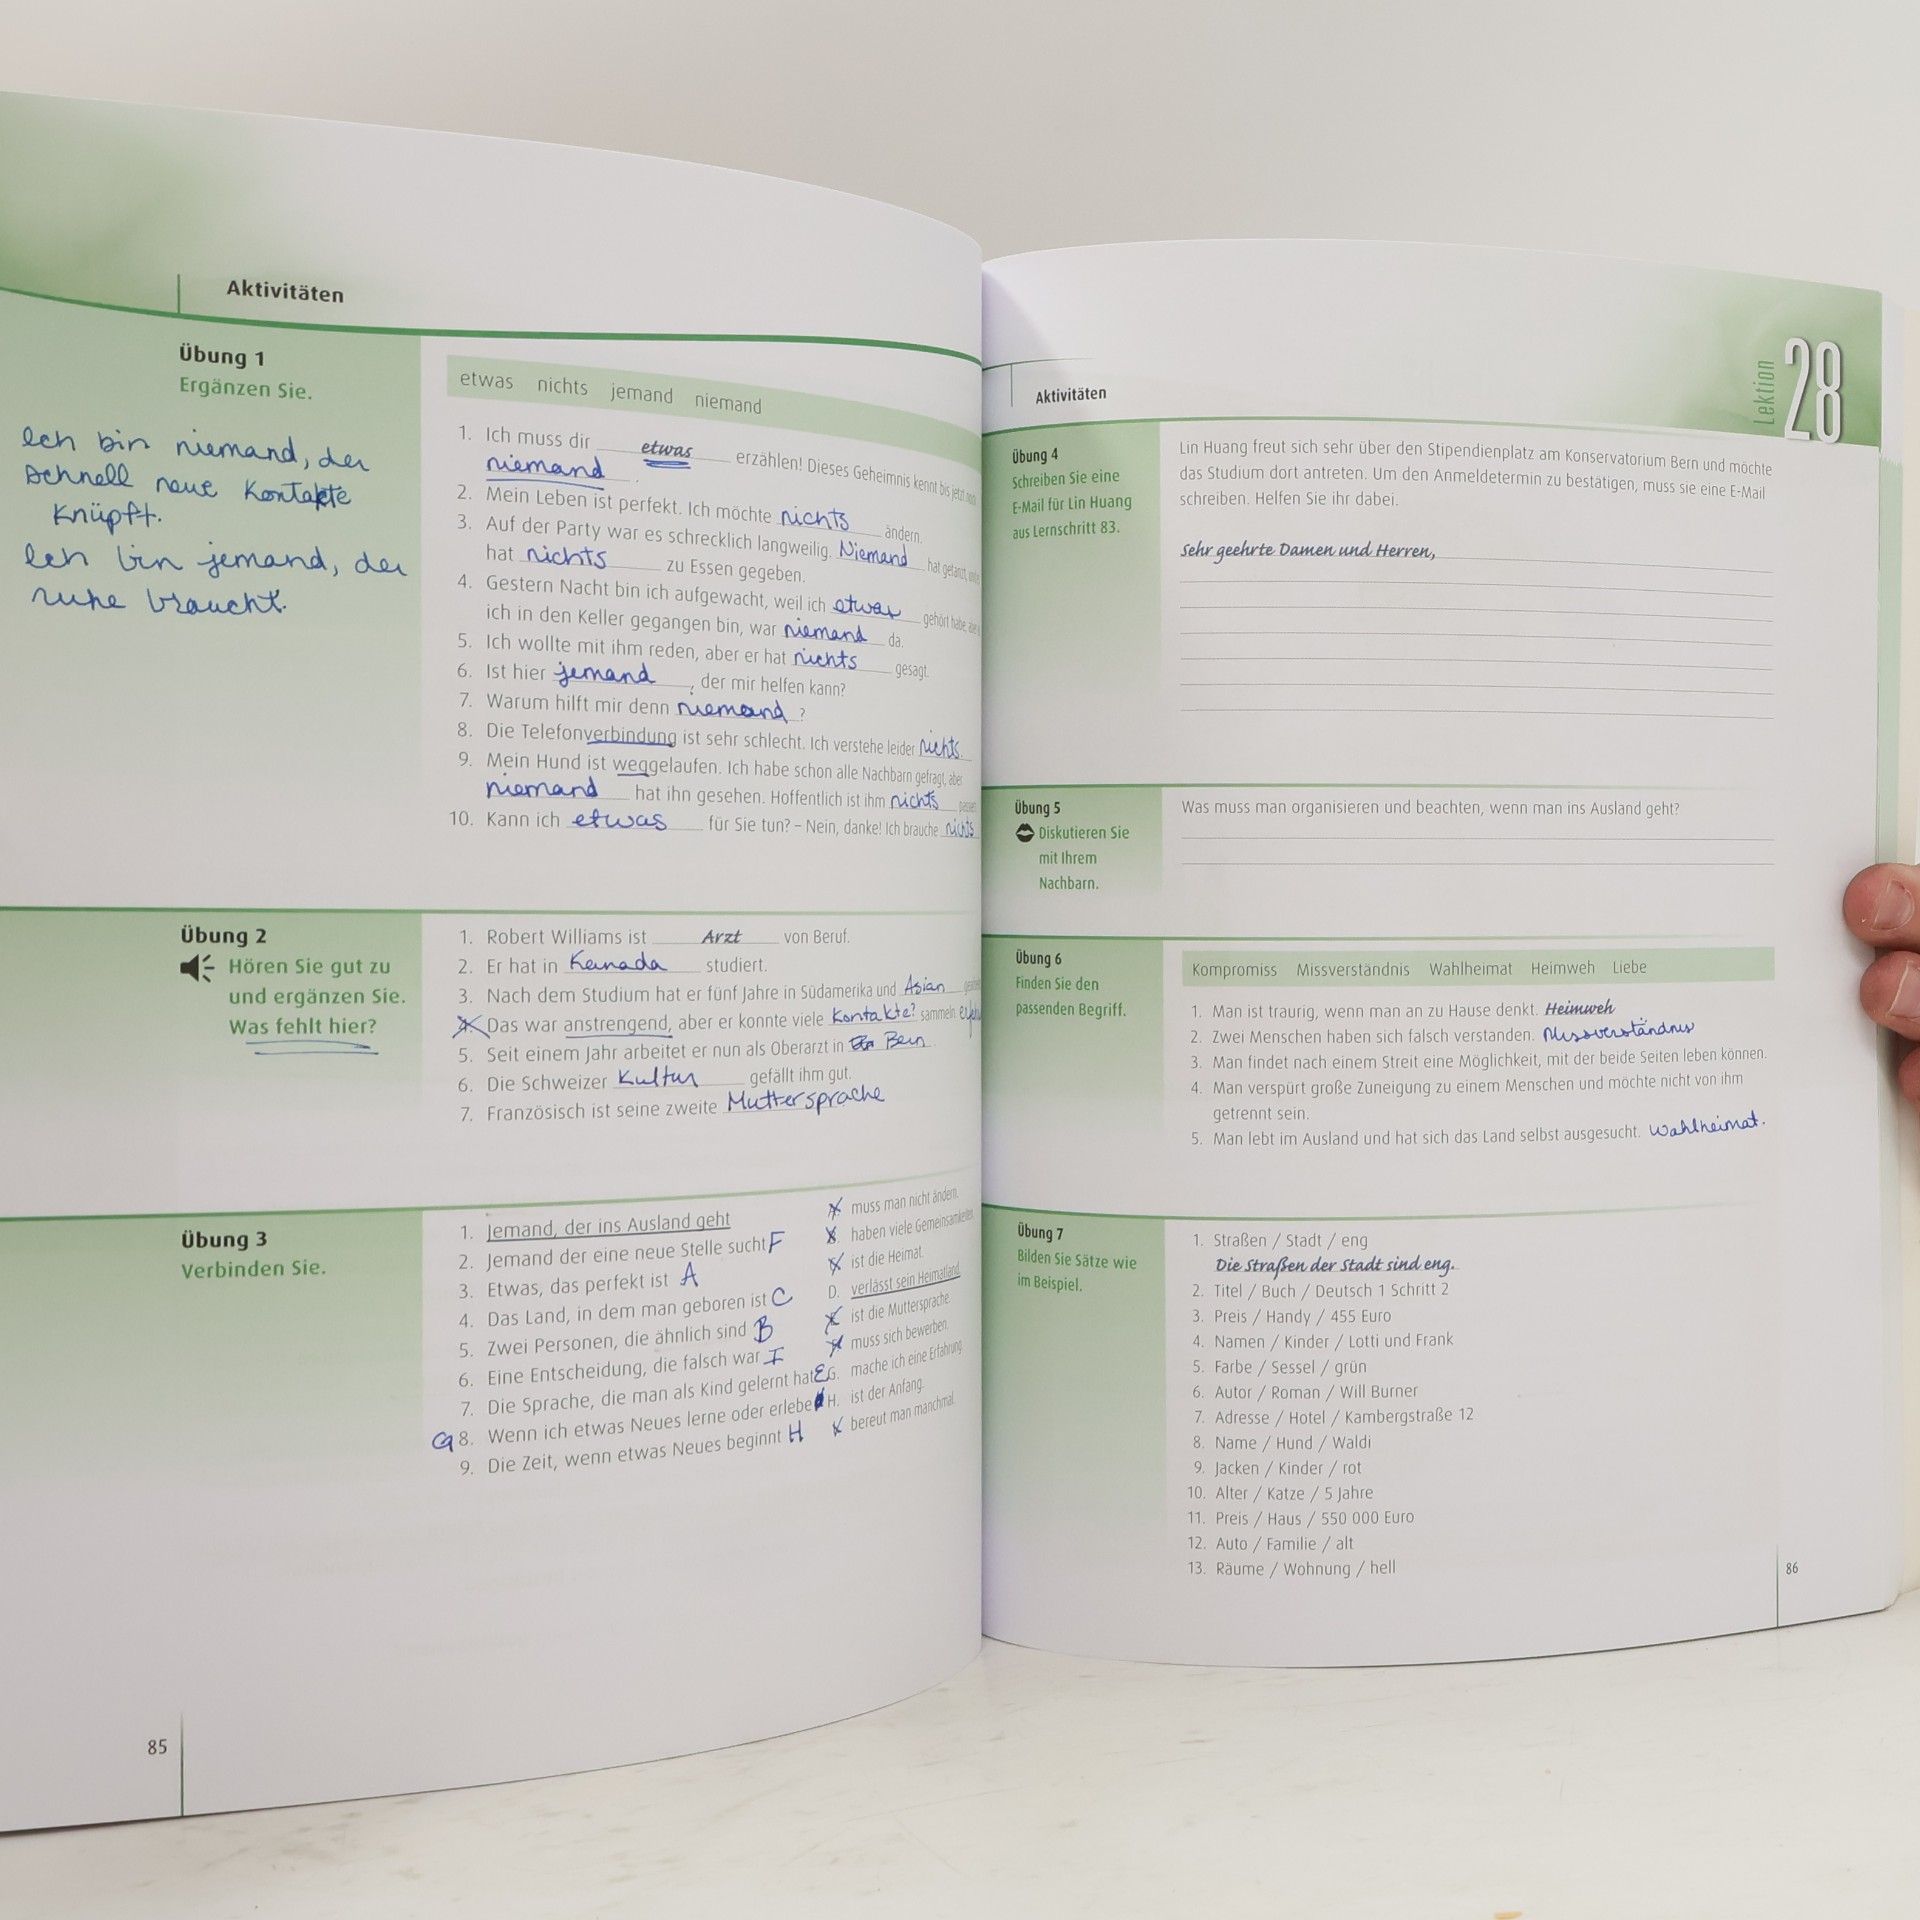 Aktivitäten
Übung 1
Ergänzen Sie.
Ich bin niemand, der
schnell neue Kontakte
knüpft.
Ich bin jemand, der
ruhe braucht.
etwas nichts jemand niemand
1. Ich muss dir etwas erzählen! Dieses Geheimnis kennt bis jetzt noch
niemand.
2. Mein Leben ist perfekt. Ich möchte nichts ändern.
3. Auf der Party war es schrecklich langweilig. Niemand hat getanzt,
hat nichts zu Essen gegeben.
4. Gestern Nacht bin ich aufgewacht, weil ich etwas gehört habe, aber
ich in den Keller gegangen bin, war niemand da.
5. Ich wollte mit ihm reden, aber er hat nichts gesagt.
6. Ist hier jemand, der mir helfen kann?
7. Warum hilft mir denn niemand?
8. Die Telefonverbindung ist sehr schlecht. Ich verstehe leider nichts.
9. Mein Hund ist weggelaufen. Ich habe schon alle Nachbarn gefragt, aber
niemand hat ihn gesehen. Hoffentlich ist ihm nichts
10. Kann ich etwas für Sie tun? – Nein, danke! Ich brauche nichts
Übung 2
Hören Sie gut zu
und ergänzen Sie.
Was fehlt hier?
1. Robert Williams ist Arzt von Beruf.
2. Er hat in Kanada studiert.
3. Nach dem Studium hat er fünf Jahre in Südamerika und Asian
Das war anstrengend, aber er konnte viele Kontakte? sammeln
5. Seit einem Jahr arbeitet er nun als Oberarzt in Bern
6. Die Schweizer Kultur gefällt ihm gut.
7. Französisch ist seine zweite Muttersprache
Übung 3
Verbinden Sie.
1. Jemand, der ins Ausland geht
2. Jemand der eine neue Stelle sucht F
3. Etwas, das perfekt ist A
4. Das Land, in dem man geboren ist C
5. Zwei Personen, die ähnlich sind B
6. Eine Entscheidung, die falsch war I
7. Die Sprache, die man als Kind gelernt hat E
G 8. Wenn ich etwas Neues lerne oder erlebe
9. Die Zeit, wenn etwas Neues beginnt H
muss man nicht ändern.
haben viele Gemeinsamkeiten.
ist die Heimat.
D. verlässt sein Heimatland.
ist die Muttersprache.
muss sich bewerben.
G. mache ich eine Erfahrung.
H. ist der Anfang.
bereut man manchmal.
85
Aktivitäten
Lektion 28
Übung 4
Schreiben Sie eine
E-Mail für Lin Huang
aus Lernschritt 83.
Lin Huang freut sich sehr über den Stipendienplatz am Konservatorium Bern und möchte
das Studium dort antreten. Um den Anmeldetermin zu bestätigen, muss sie eine E-Mail
schreiben. Helfen Sie ihr dabei.
Sehr geehrte Damen und Herren,
Übung 5
Diskutieren Sie
mit Ihrem
Nachbarn.
Was muss man organisieren und beachten, wenn man ins Ausland geht?
Übung 6
Finden Sie den
passenden Begriff.
Kompromiss Missverständnis Wahlheimat Heimweh Liebe
1. Man ist traurig, wenn man an zu Hause denkt. Heimweh
2. Zwei Menschen haben sich falsch verstanden. Missverständnis
3. Man findet nach einem Streit eine Möglichkeit, mit der beide Seiten leben können.
4. Man verspürt große Zuneigung zu einem Menschen und möchte nicht von ihm
getrennt sein.
5. Man lebt im Ausland und hat sich das Land selbst ausgesucht. Wahlheimat.
Übung 7
Bilden Sie Sätze wie
im Beispiel.
1. Straßen / Stadt / eng
Die Straßen der Stadt sind eng.
2. Titel / Buch / Deutsch 1 Schritt 2
3. Preis / Handy / 455 Euro
4. Namen / Kinder / Lotti und Frank
5. Farbe / Sessel / grün
6. Autor / Roman / Will Burner
7. Adresse / Hotel / Kambergstraße 12
8. Name / Hund / Waldi
9. Jacken / Kinder / rot
10. Alter / Katze / 5 Jahre
11. Preis / Haus / 550 000 Euro
12. Auto / Familie / alt
13. Räume / Wohnung / hell
86